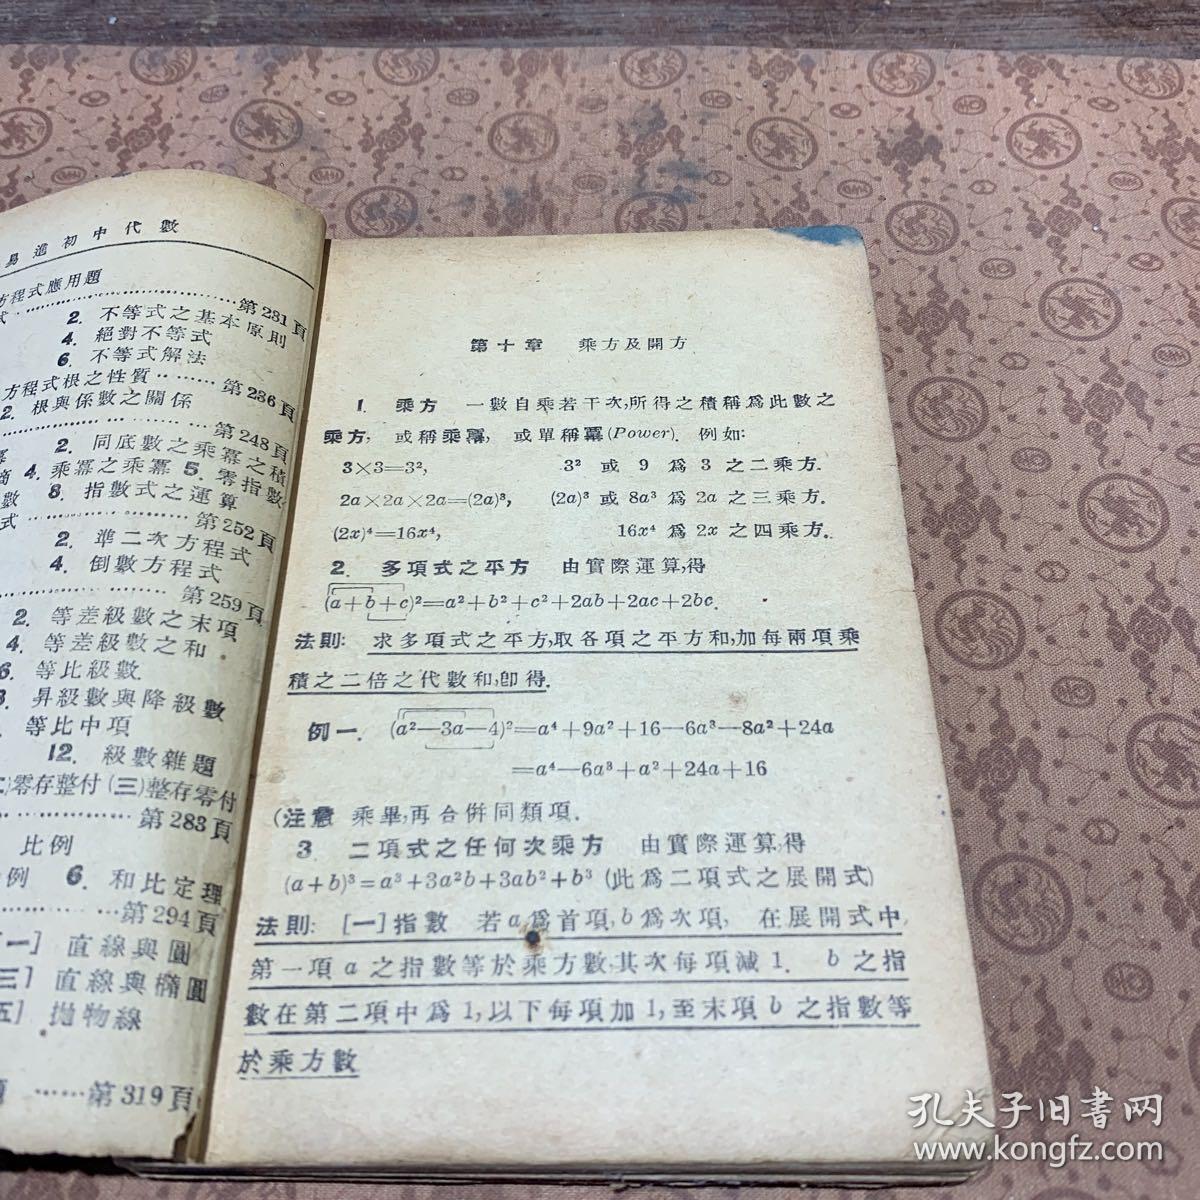 易進初中代數
方程式應用題
式 …… 第231頁
2. 不等式之基本原則
4. 絕對不等式
6. 不等式解法
方程式根之性質 …… 第236頁
2. 根與係數之關係
…… 第248頁
冪 2. 同底數之乘冪之積
商 4. 乘冪之乘冪 5. 零指數
數 8. 指數式之運算
式 …… 第252頁
2. 準二次方程式
4. 倒數方程式
…… 第259頁
2. 等差級數之末項
4. 等差級數之和
6. 等比級數
昇級數與降級數
等比中項
12. 級數雜題
零存整付 (三)整存零付
…… 第283頁
比例
例 6. 和比定理
…… 第294頁
[一] 直線與圓
三] 直線與橢圓
五] 拋物線
題 …… 第319頁
第十章 乘方及開方
1. 乘方 一數自乘若干次,所得之積稱爲此數之
乘方, 或稱乘冪, 或單稱冪(Power). 例如:
3×3=3², 3² 或 9 爲 3 之二乘方.
2a×2a×2a=(2a)³, (2a)³ 或 8a³ 爲 2a 之三乘方.
(2x)⁴=16x⁴, 16x⁴ 爲 2x 之四乘方.
2. 多項式之平方 由實際運算,得
(a+b+c)²=a²+b²+c²+2ab+2ac+2bc.
法則: 求多項式之平方,取各項之平方和,加每兩項乘
積之二倍之代數和,卽得.
例一. (a²—3a—4)²=a⁴+9a²+16—6a³—8a²+24a
=a⁴—6a³+a²+24a+16
(注意 乘畢,再合併同類項.
3 二項式之任何次乘方 由實際運算,得
(a+b)³=a³+3a²b+3ab²+b³ (此爲二項式之展開式)
法則: [一]指數 若a爲首項,b爲次項, 在展開式中
第一項a之指數等於乘方數,其次每項減1. b之指
數在第二項中爲1,以下每項加1,至末項b之指數等
於乘方數
孔夫子旧书网
www.kongfz.com